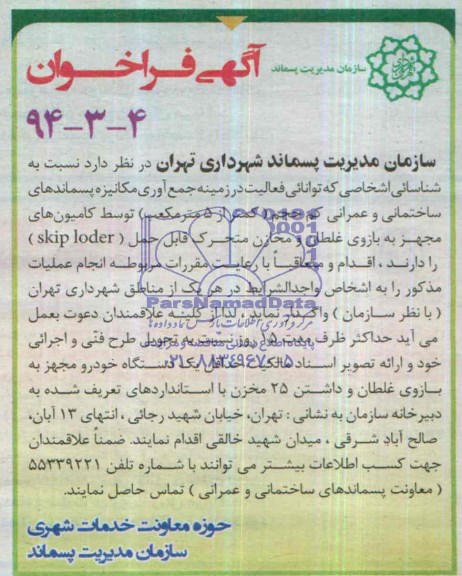 سازمان مدیریت پسماند
آگهی فراخوان
۹۴-۳-۴
سازمان مدیریت پسماند شهرداری تهران در نظر دارد نسبت به
شناسائی اشخاصی که توانائی فعالیت در زمینه جمع آوری مکانیزه پسماندهای
ساختمانی و عمرانی کم حجم ( کمتر از ۵ مترمکعب) توسط کامیون‌های
مجهز به بازوی غلطان و مخازن متحرک قابل حمل ( skip loder )
را دارند ، اقدام و متعاقباً با رعایت مقررات مربوطه انجام عملیات
مذکور را به اشخاص واجدالشرایط در هر یک از مناطق شهرداری تهران
( با نظر سازمان ) واگذار نماید ، لذا از کلیه علاقمندان دعوت بعمل
می آید حداکثر ظرف مدت ۱۵ روز نسبت به تحویل طرح فنی و اجرائی
خود و ارائه تصویر اسناد مالکیت حداقل یک دستگاه خودرو مجهز به
بازوی غلطان و داشتن ۲۵ مخزن با استانداردهای تعریف شده به
دبیرخانه سازمان به نشانی : تهران، خیابان شهید رجائی ، انتهای ۱۳ آبان،
صالح آباد شرقی ، میدان شهید خالقی اقدام نمایند. ضمناً علاقمندان
جهت کسب اطلاعات بیشتر می توانند با شماره تلفن ۵۵۳۳۹۲۲۱
( معاونت پسماندهای ساختمانی و عمرانی ) تماس حاصل نمایند.
حوزه معاونت خدمات شهری
سازمان مدیریت پسماند
ParsNamadData